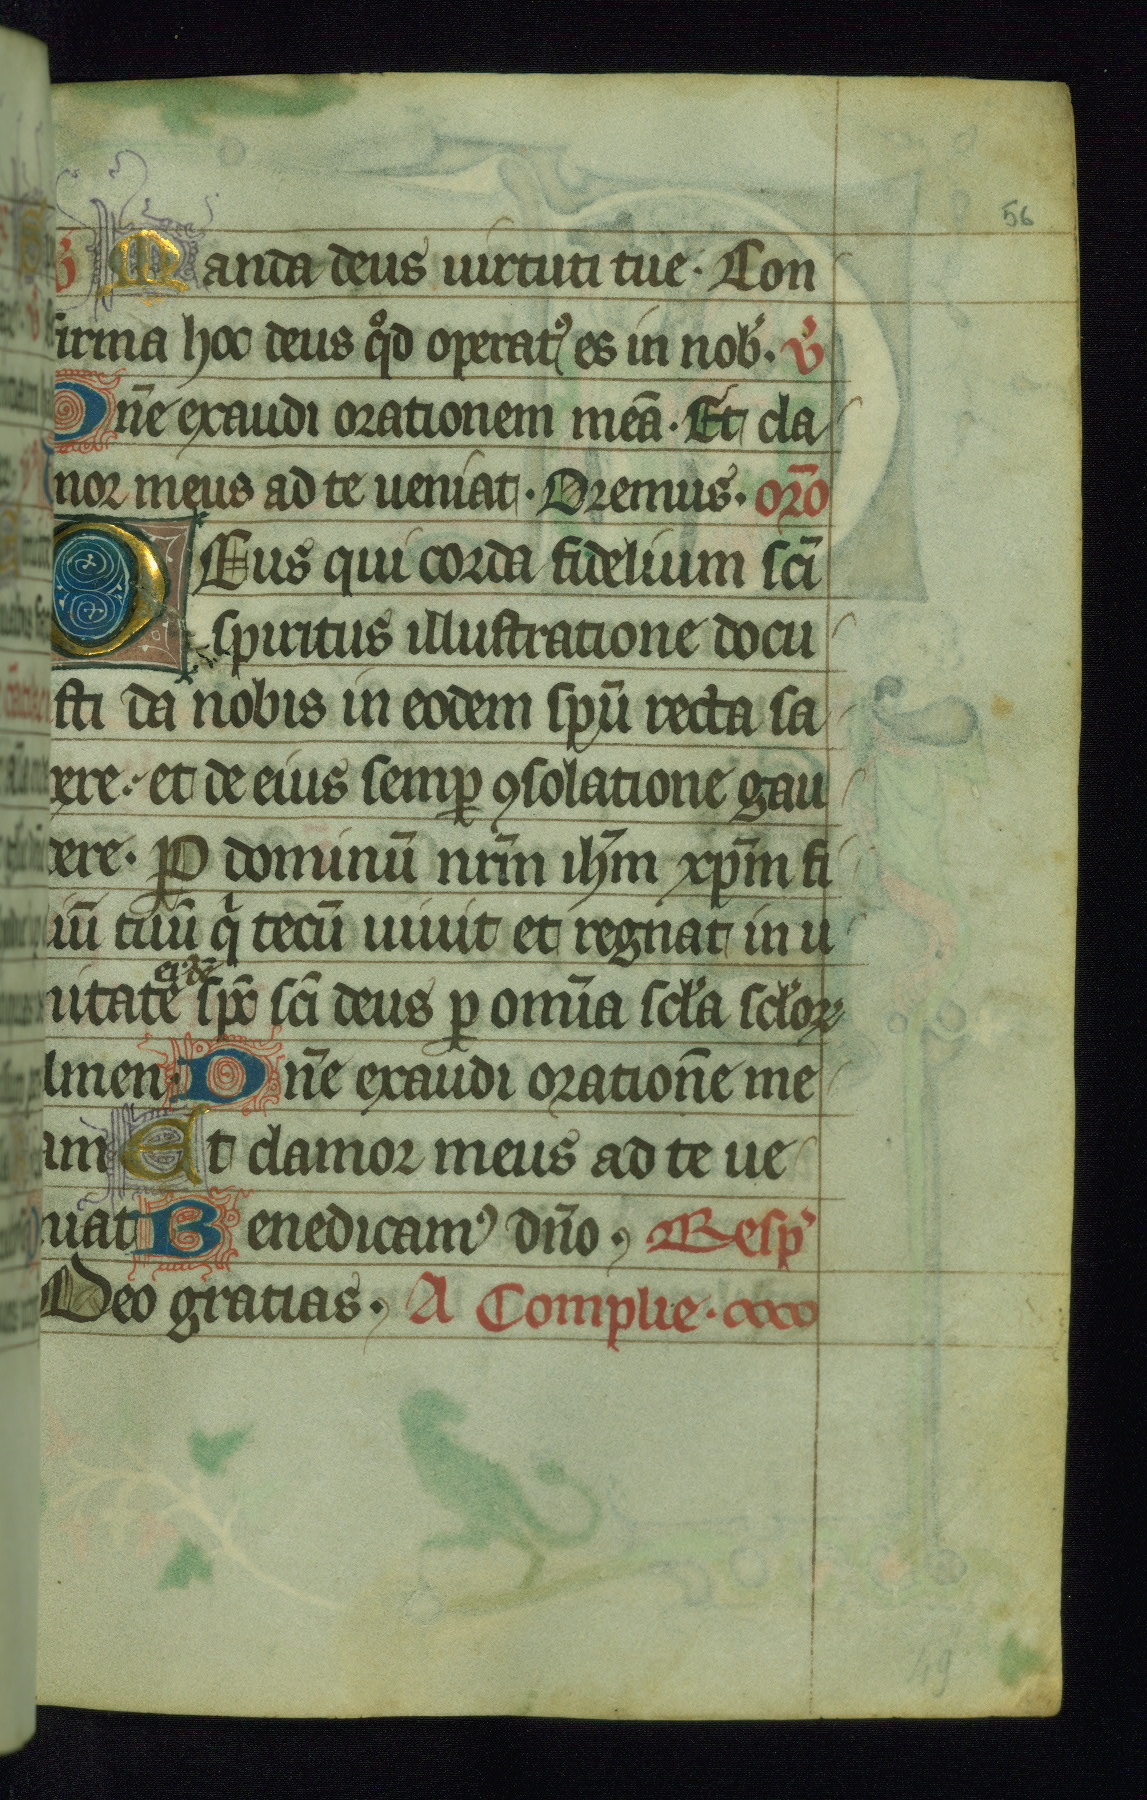 56
v̉ Manda deus uirtuti tue · Con
firma hoc deus qͦd operatꝰ es in nob̉ · v̉
Dn̄e exaudi orationem meā · Et cla
mor meus ad te ueniat · Oremus · or̄o
DEus qui corda fidelium sc̄i
spiritus illustratione docu
isti da nobis in eodem spū recta sa
pere · et de eius semꝑ ꝯsolatione gau
dere · P dominū nr̄m ih̄m xp̄m fi
liū tuū q̉ tecū uiuit et regnat in u
nitate eiꝰdē sp̄c sc̄i deus ꝑ omīa scl̉a scl̉oꝝ
Amen · Dn̄e exaudi oration̄e me
am Et clamor meus ad te ue
niat Benedicamꝰ dn̄o · Resp̉
Deo gratias · A Complie ·
49